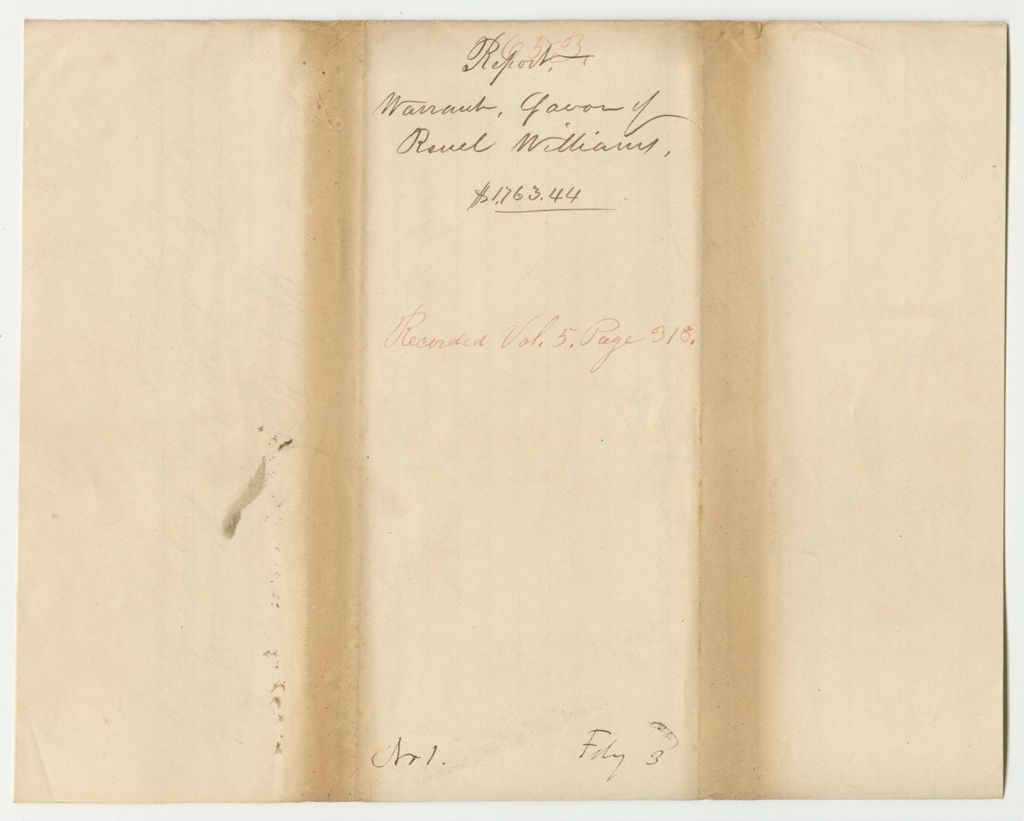 653
Report,
Warrant, favor of
Reuel Williams,
$1,763.44
Recorded Vol. 5. Page 318.
No 1.
Feby 3